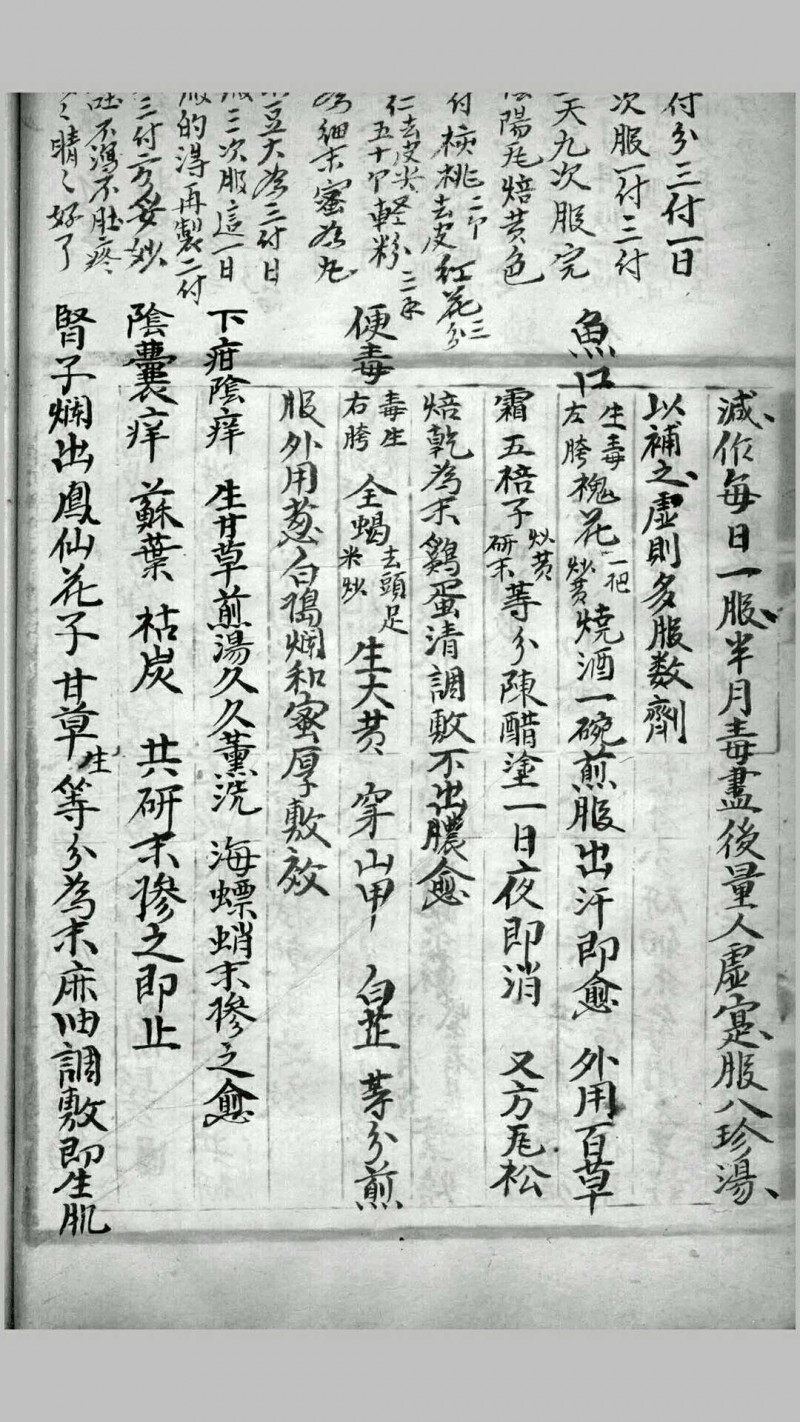 付分三付一日
次服一付三付
天九次服完
陰陽瓦焙黄色
付 核桃二个去皮 紅花三分
仁去皮尖 輕粉三
五十个
為細末蜜為丸
豆大分三付日
服三次服這一日
服的淂再製二付
三付二方妥妙
吐不瀉不肚疼
晴〻好了
減作每日一服半月毒盡後量人虛寔服八珍湯
以補之虛則多服数劑
魚口 生毒左胯 槐花一把炒黄 燒酒一碗煎服出汗即愈 外用百草
霜五棓子炒黄研末等分陳醋塗一日夜即消 又方瓦松
焙乾為末鷄蛋清調敷不出膿愈
便毒 毒生右胯 全蝎去頭足米炒 生大黄 穿山甲 白芷 等分煎
服外用葱白搗爛和蜜厚敷效
下疳陰痒 生甘草煎湯久久薰洗 海螵蛸末摻之愈
陰囊痒 蘇葉 枯炭 共研末摻之即止
腎子爛出鳳仙花子甘草生等分為末麻油調敷即生肌